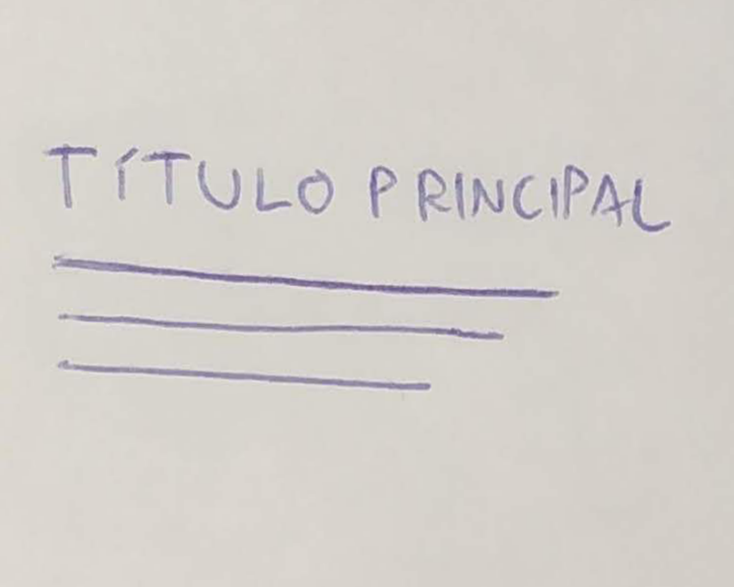 TÍTULO PRINCIPAL